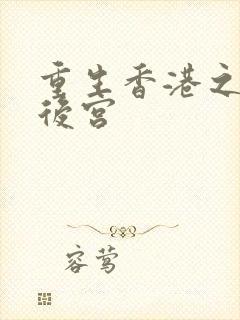 重生香港之
後宫
容莺